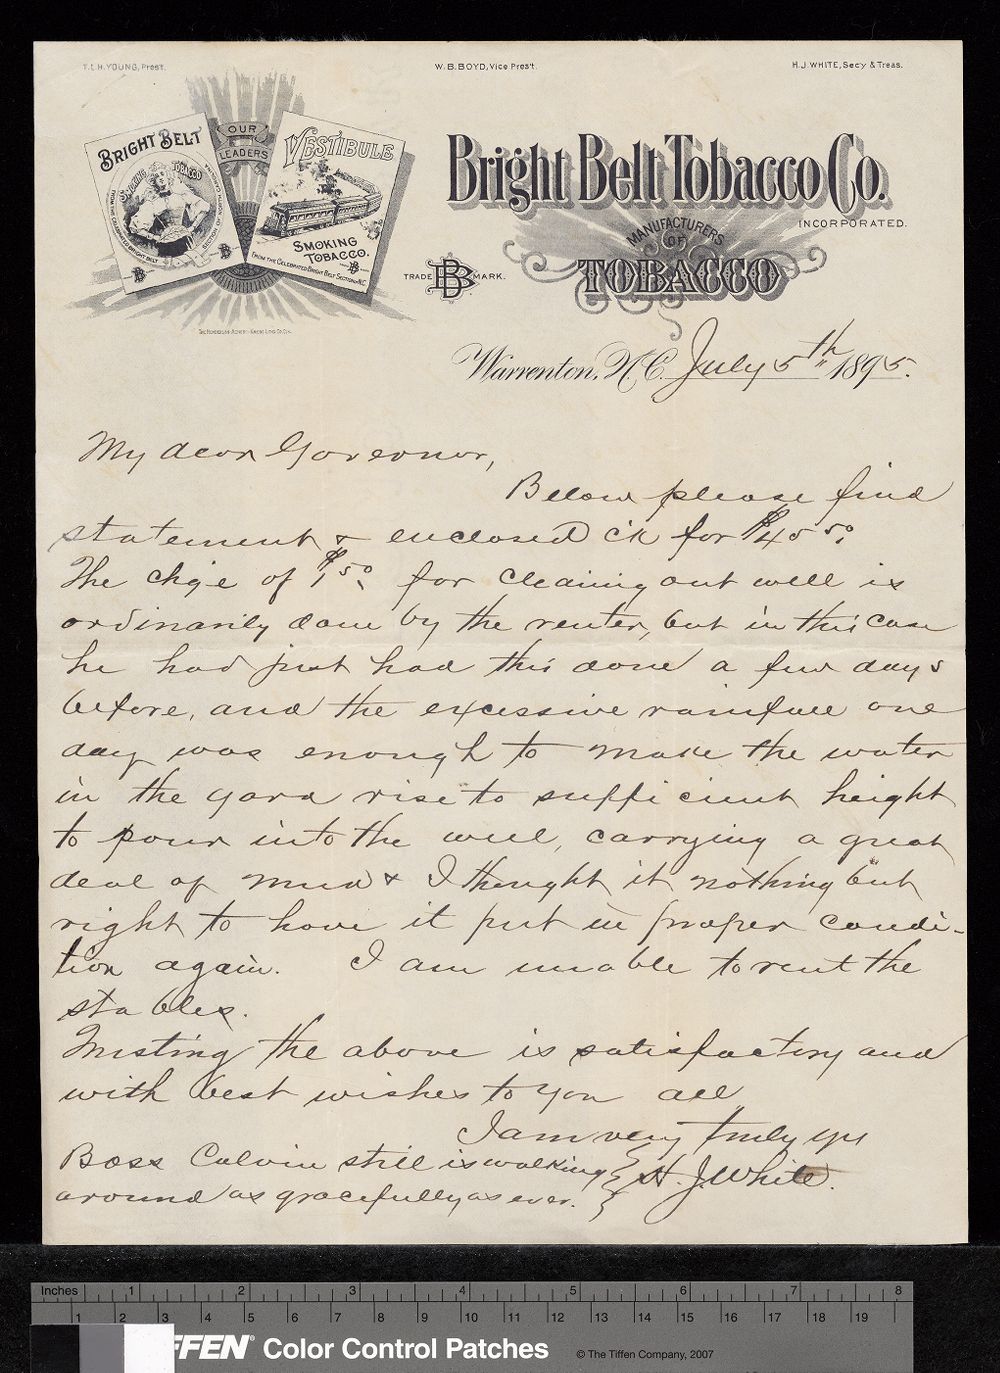 T. L. H. YOUNG, Pres't.
W. B. BOYD, Vice Pres't.
H. J. WHITE, Sec'y & Treas.
BRIGHT BELT
SMOKING TOBACCO
OUR
LEADERS
VESTIBULE
SMOKING
TOBACCO.
FROM THE CELEBRATED BRIGHT BELT SECTION OF N.C.
Bright Belt Tobacco Co.
INCORPORATED.
MANUFACTURERS
OF
TOBACCO
TRADE BB MARK.
Warrenton, N.C. July 5th 1895.
My dear Governor,
Below please find
statement & enclosed ck for $45 50.
The chg'e of $1 50 for cleaning out well is
ordinarily done by the renter, but in this case
he had just had this done a few days
before, and the excessive rainfall one
day was enough to make the water
in the yard rise to sufficient height
to pour into the well, carrying a great
deal of mud & I thought it nothing but
right to have it put in proper condi-
tion again. I am unable to rent the
stables.
Trusting the above is satisfactory and
with best wishes to you all
I am very truly yrs
H. J. White.
Boss Calvin still is walking
around as gracefully as ever.
Inches 1 2 3 4 5 6 7 8
1 2 3 4 5 6 7 8 9 10 11 12 13 14 15 16 17 18 19
FFEN® Color Control Patches © The Tiffen Company, 2007